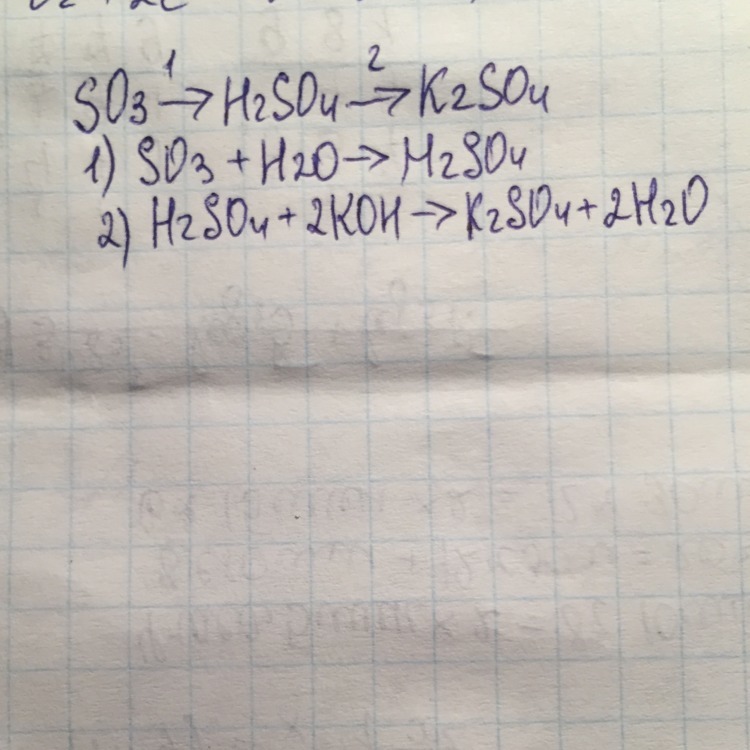 SO3 →1 H2SO4 →2 K2SO4
1) SO3 + H2O → H2SO4
2) H2SO4 + 2KOH → K2SO4 + 2H2O